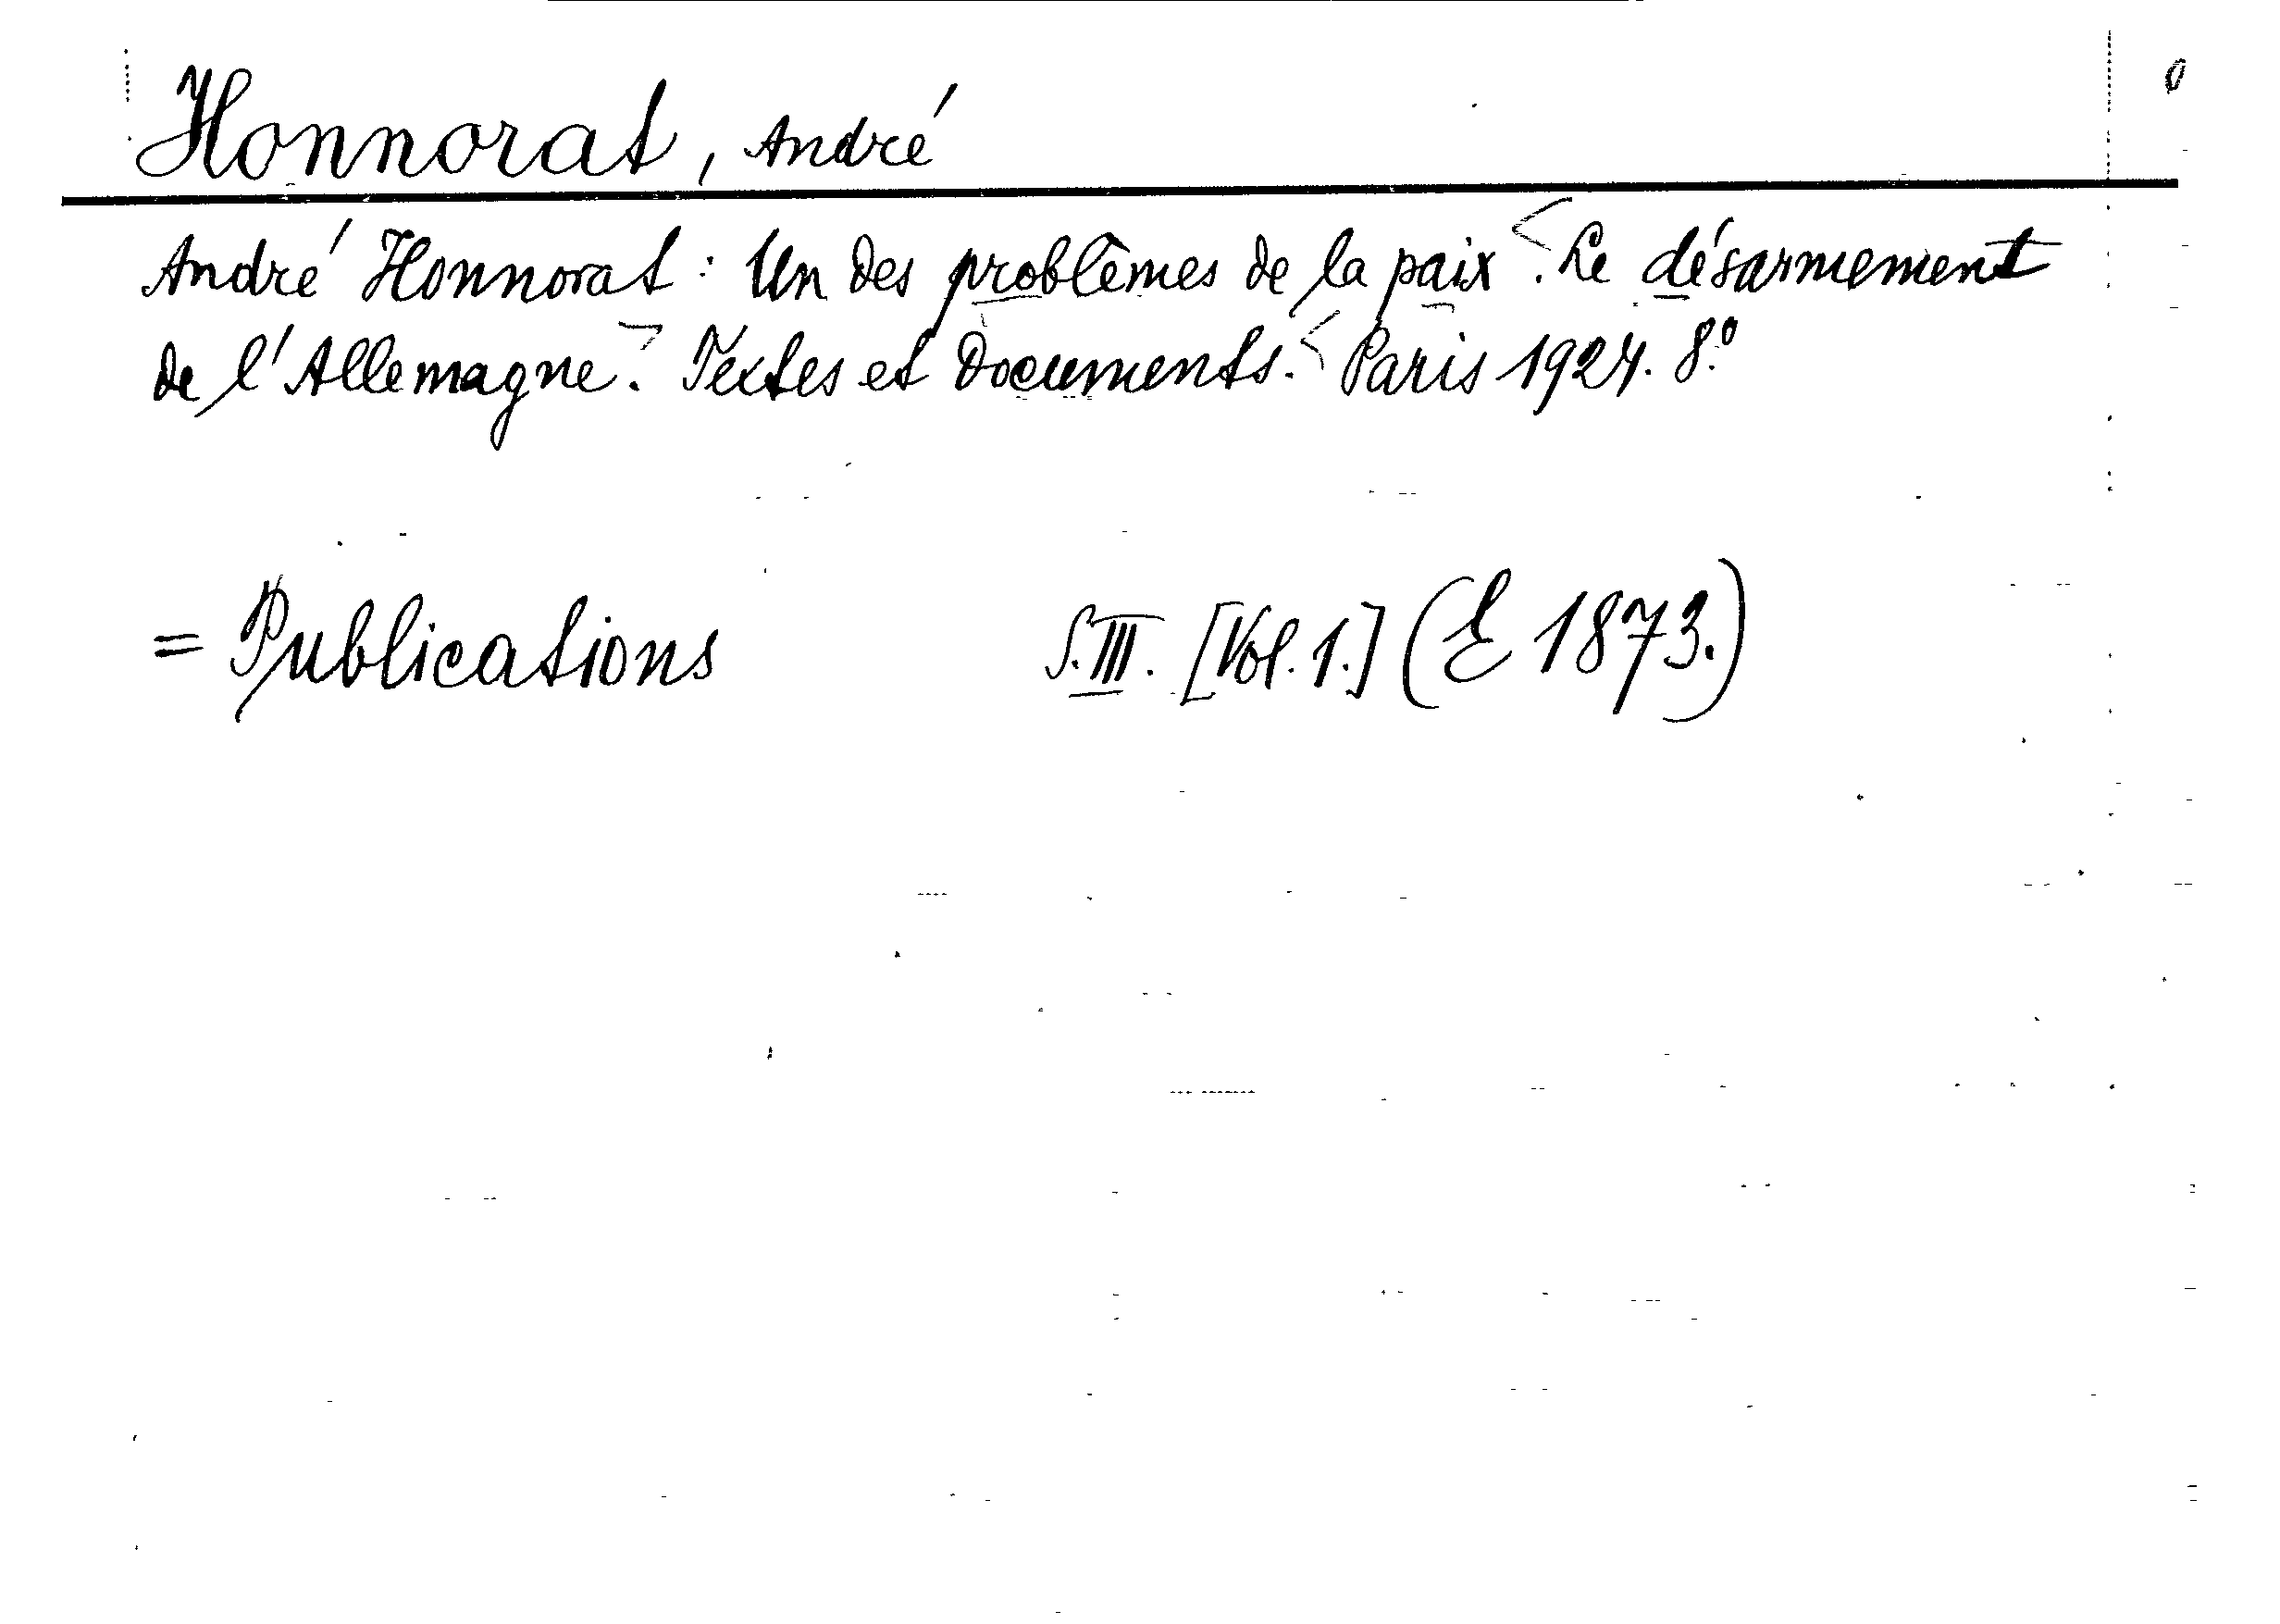 Honnorat, André
André Honnorat: Un des problêmes de la paix. Le désarmement
de l'Allemagne. Textes et Documents. Paris 1924. 8.º
= Publications S. III. [Vol. 1.] (E 1873.)